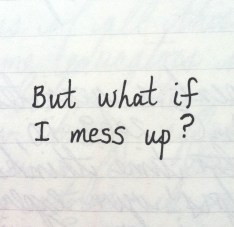 But what if
I mess up?